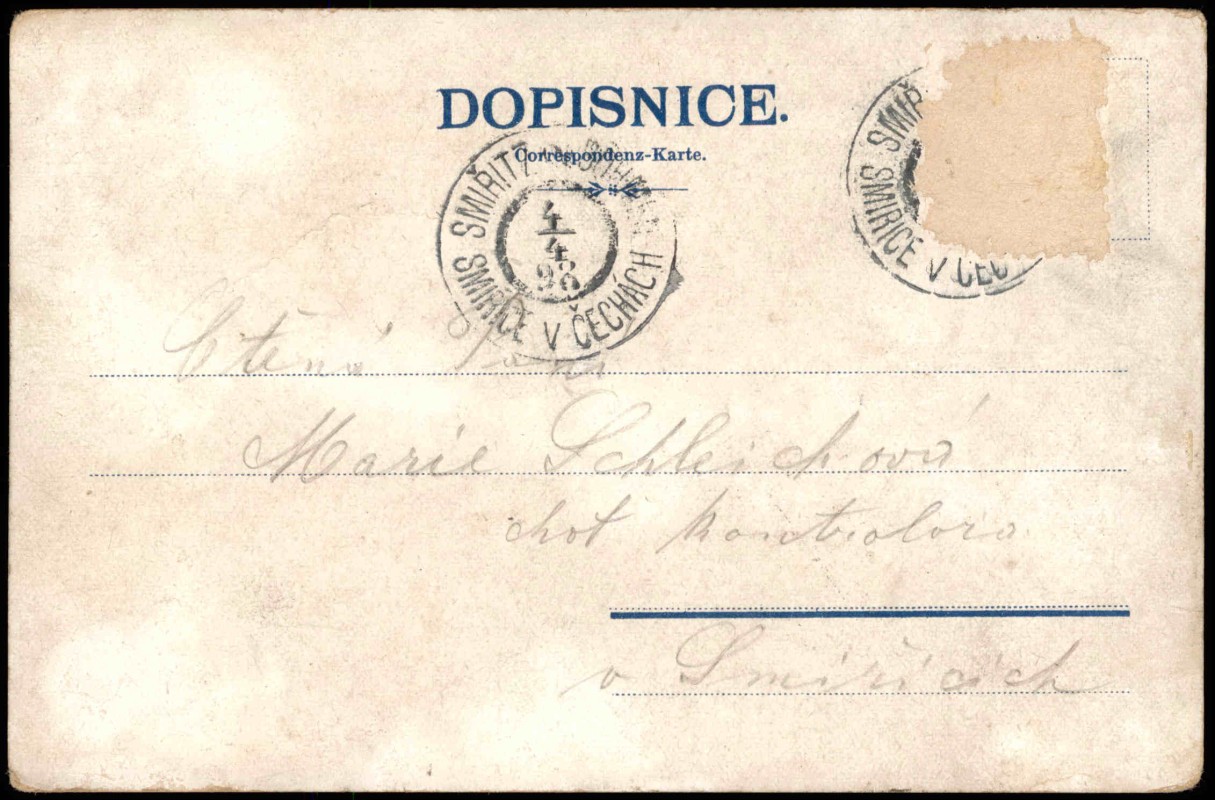 DOPISNICE.
Correspondenz-Karte.
SMIŘITZ
4
4
98
SMIŘICE V ČECHÁCH
SMIŘ
SMIŘICE V ČEC
Ctěná Paní
Marie Schleichová
choť kontrolora
v Smiřicích